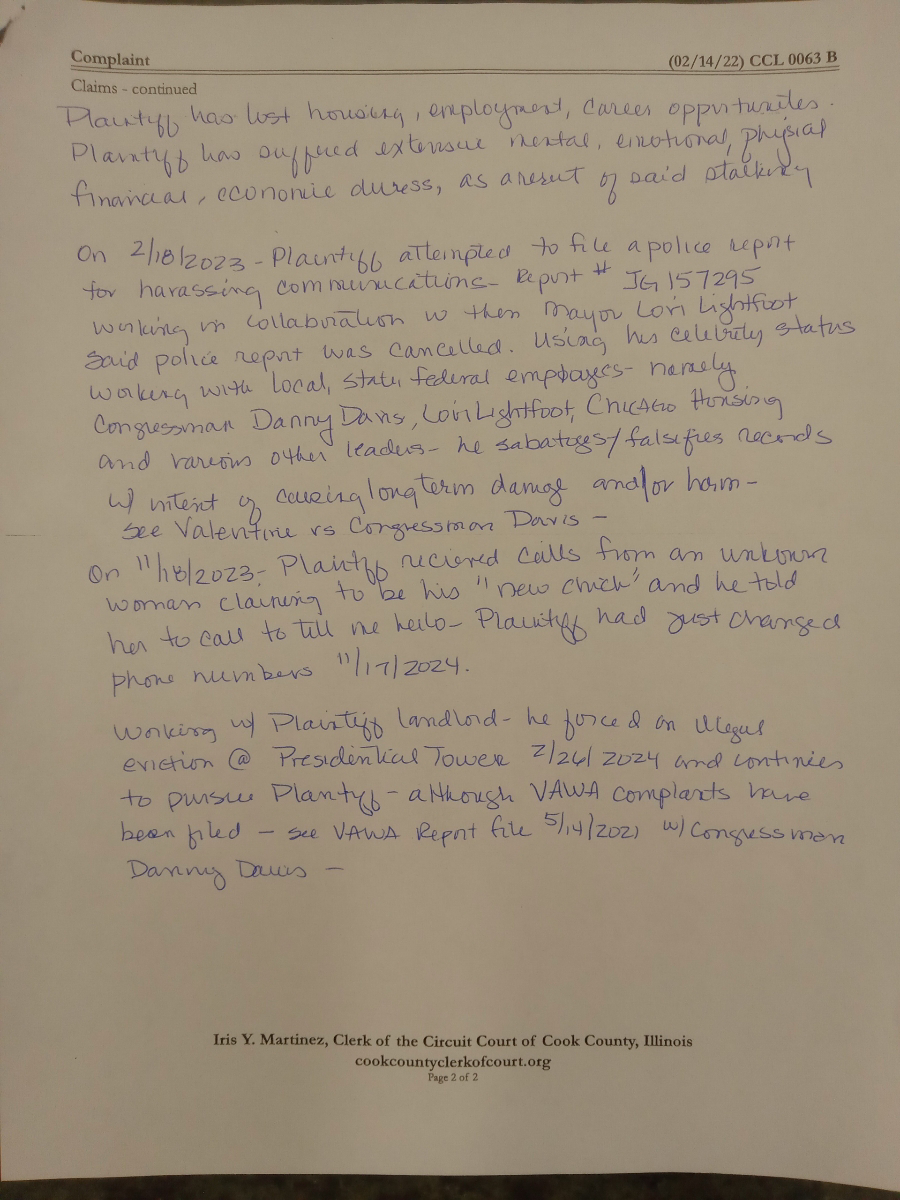 Complaint (02/14/22) CCL 0063 B
Claims - continued
Plaintiff has lost housing, employment, career opportunites.
Plaintiff has suffued extensive mental, emotional, physial
financial, economic duress, as a resut of said stalking
On 2/18/2023 - Plaintiff attempted to file a police report
for harassing communications - Report # JG157295
working in collaboration w then Mayor Lori Lightfoot
said police report was cancelled. Using his celebrity status
working with local, state, federal employees - namely
Congressman Danny Davis, Lori Lightfoot, Chicago Housing
and various other leaders - he sabatoges/falsifies records
w/ intent of causing long term damage and/or harm -
see Valentine vs Congressman Davis -
On 11/18/2023 - Plaintiff recieved calls from an unkown
woman claiming to be his "new chick" and he told
her to call to till me hello - Plaintiff had just changed
phone numbers 11/17/2024.
Working w/ Plaintiff landlord - he forced an illegal
eviction @ Presidential Tower 2/26/2024 and continies
to pursue Plantiff - although VAWA complants have
been filed - see VAWA Report file 5/14/2021 w/ Congressman
Danny Davis -
Iris Y. Martinez, Clerk of the Circuit Court of Cook County, Illinois
cookcountyclerkofcourt.org
Page 2 of 2